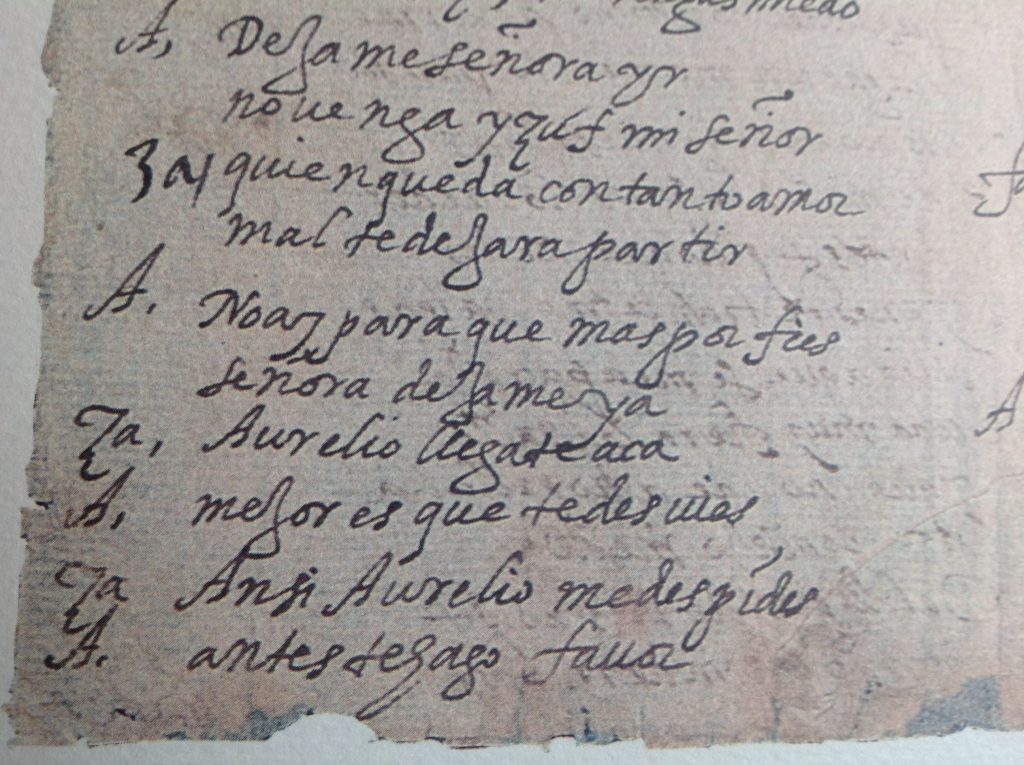 tengas miedo
A, Dexame señora yr
no uenga yzuf mi señor
Za, quien queda con tanto amor
mal te dexara partir
A. No ay para que mas porfies
señora dexame ya
Za, Aurelio llegate aca
A, mejor es que te desuies
Za Ansi Aurelio me despides
A. antes te hago fauor
A